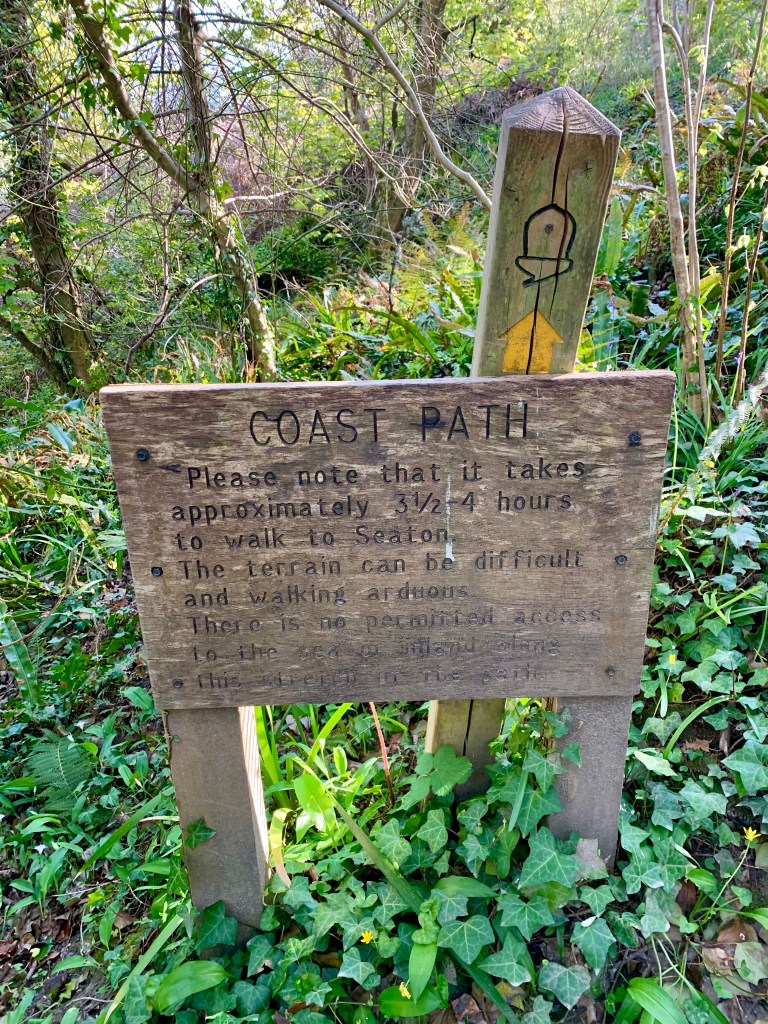 COAST PATH
Please note that it takes
approximately 3½-4 hours
to walk to Seaton.
The terrain can be difficult
and walking arduous.
There is no permitted access
to the sea or inland along
this stretch of the path.